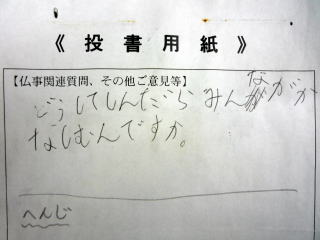 《 投 書 用 紙 》
【仏事関連質問、その他ご意見等】
どうしてしんだら みんながか
なしむんですか。
へんじ